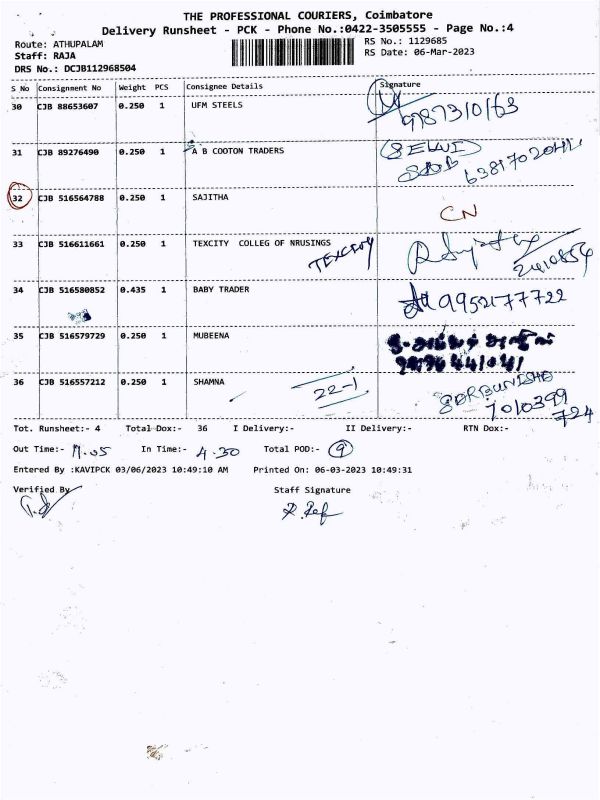 THE PROFESSIONAL COURIERS, Coimbatore
Delivery Runsheet - PCK - Phone No.:0422-3505555 - Page No.:4
Route: ATHUPALAM
RS No.: 1129685
Staff: RAJA
RS Date: 06-Mar-2023
DRS No.: DCJB112968504
S No Consignment No Weight PCS Consignee Details Signature
30 CJB 88653607 0.250 1 UFM STEELS
9787310163
31 CJB 89276490 0.250 1 A B COOTON TRADERS SELWI
32 CJB 516564788 0.250 1 SAJITHA
CN
33 CJB 516611661 0.250 1 TEXCITY COLLEG OF NRUSINGS TEXCITY
2410854
34 CJB 516580852 0.435 1 BABY TRADER 9952177722
35 CJB 516579729 0.250 1 MUBEENA
36 CJB 516557212 0.250 1 SHAMNA 22-1
7010399
724
Tot. Runsheet:- 4 Total Dox:- 36 I Delivery:- II Delivery:- RTN Dox:-
Out Time:- 11.05 In Time:- 4.30 Total POD:- 9
Entered By :KAVIPCK 03/06/2023 10:49:10 AM Printed On: 06-03-2023 10:49:31
Verified By Staff Signature